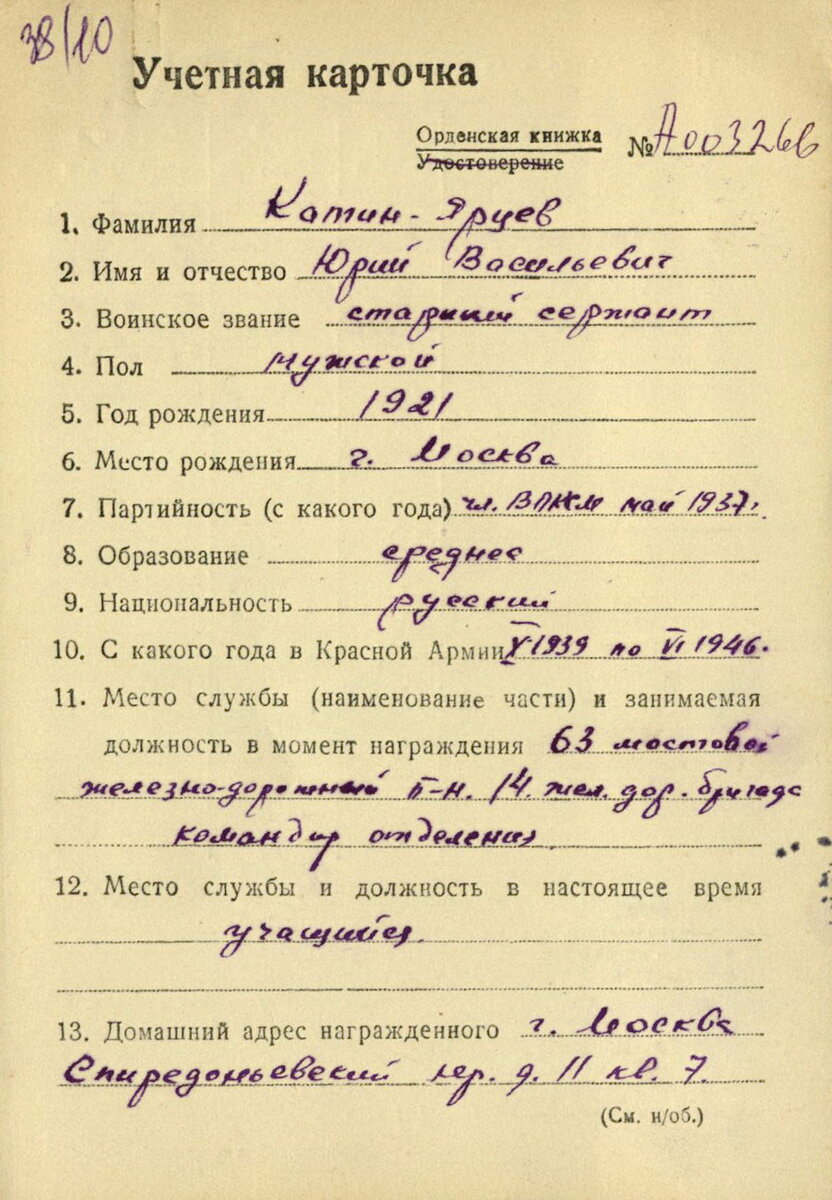 38/10
Учетная карточка
Орденская книжка
Удостоверение
№ А003266
1. Фамилия Катин-Ярцев
2. Имя и отчество Юрий Васильевич
3. Воинское звание старший сержант
4. Пол мужской
5. Год рождения 1921
6. Место рождения г. Москва
7. Партийность (с какого года) чл. ВЛКСМ май 1937г.
8. Образование среднее
9. Национальность русский
10. С какого года в Красной Армии X 1939 по VI 1946.
11. Место службы (наименование части) и занимаемая
должность в момент награждения 63 мостовой
железно-дорожный б-н. 14 жел. дор. бригада
командир отделения
12. Место службы и должность в настоящее время
учащийся.
13. Домашний адрес награжденного г. Москва
Спиредоньевский пер. д. 11 кв. 7.
(См. н/об.)